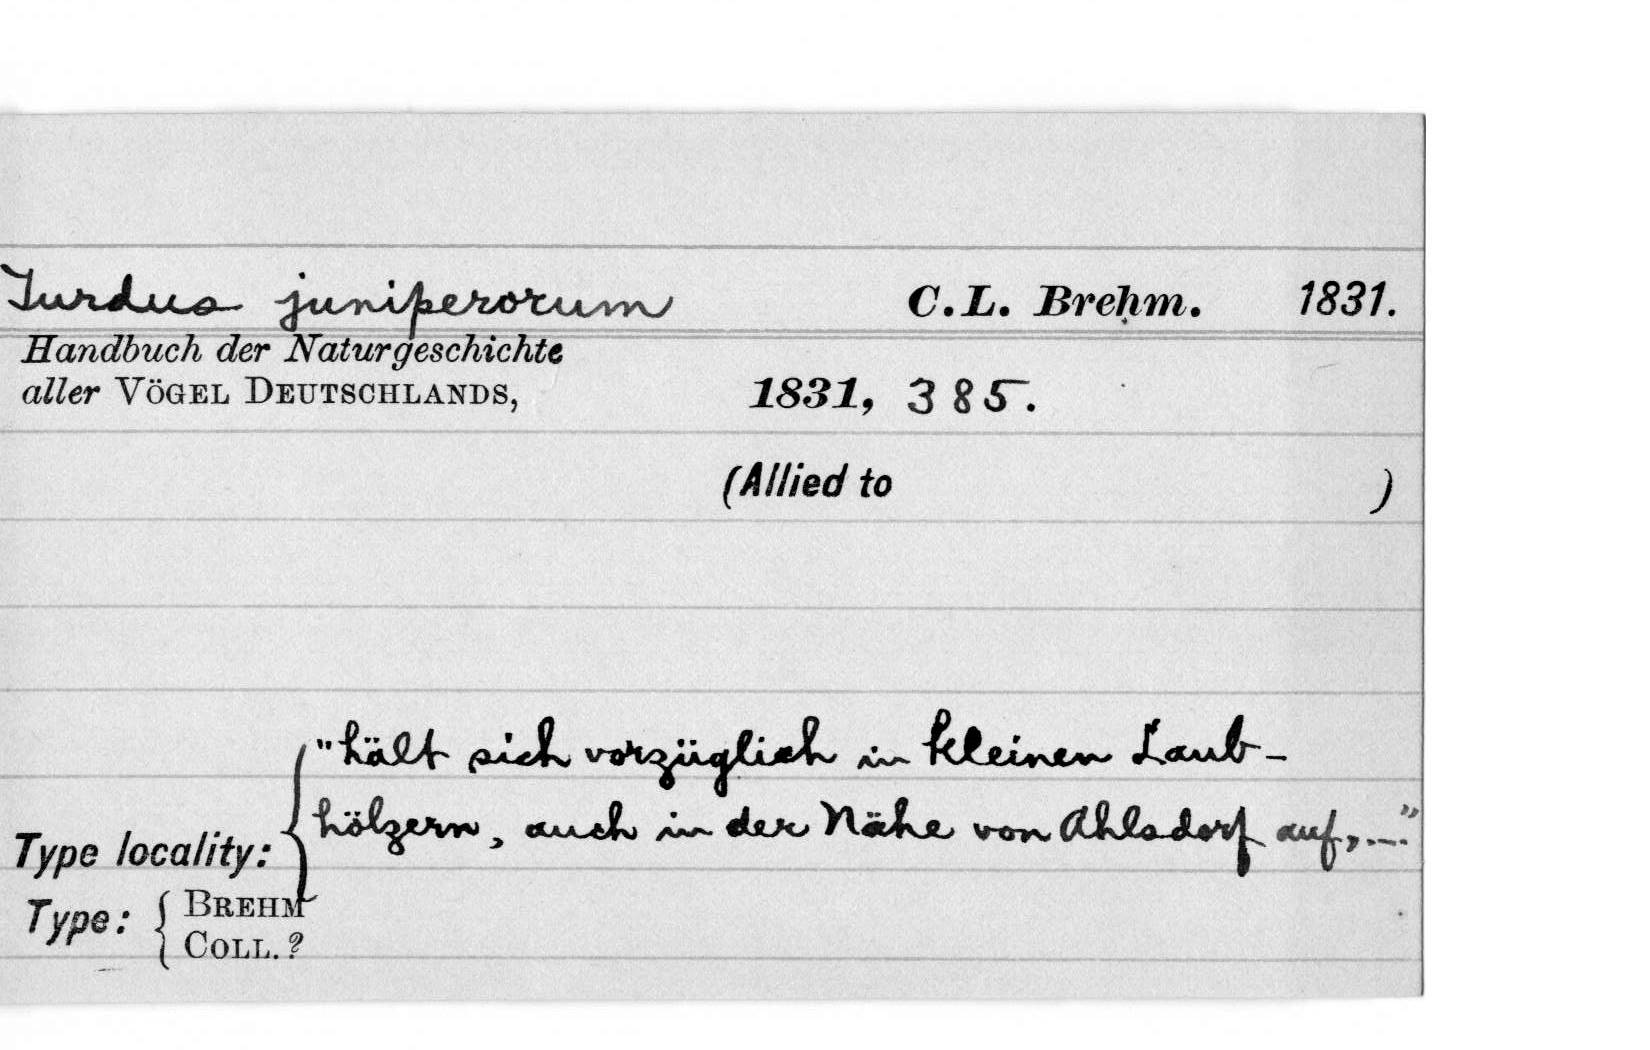 Turdus juniperorum C.L. Brehm. 1831.
Handbuch der Naturgeschichte
aller VÖGEL DEUTSCHLANDS, 1831, 385.
(Allied to )
"hält sich vorzüglich in kleinen Laub-
hölzern, auch in der Nähe von Ahlsdorf auf,...."
Type locality:
Type: { BREHM
COLL.?